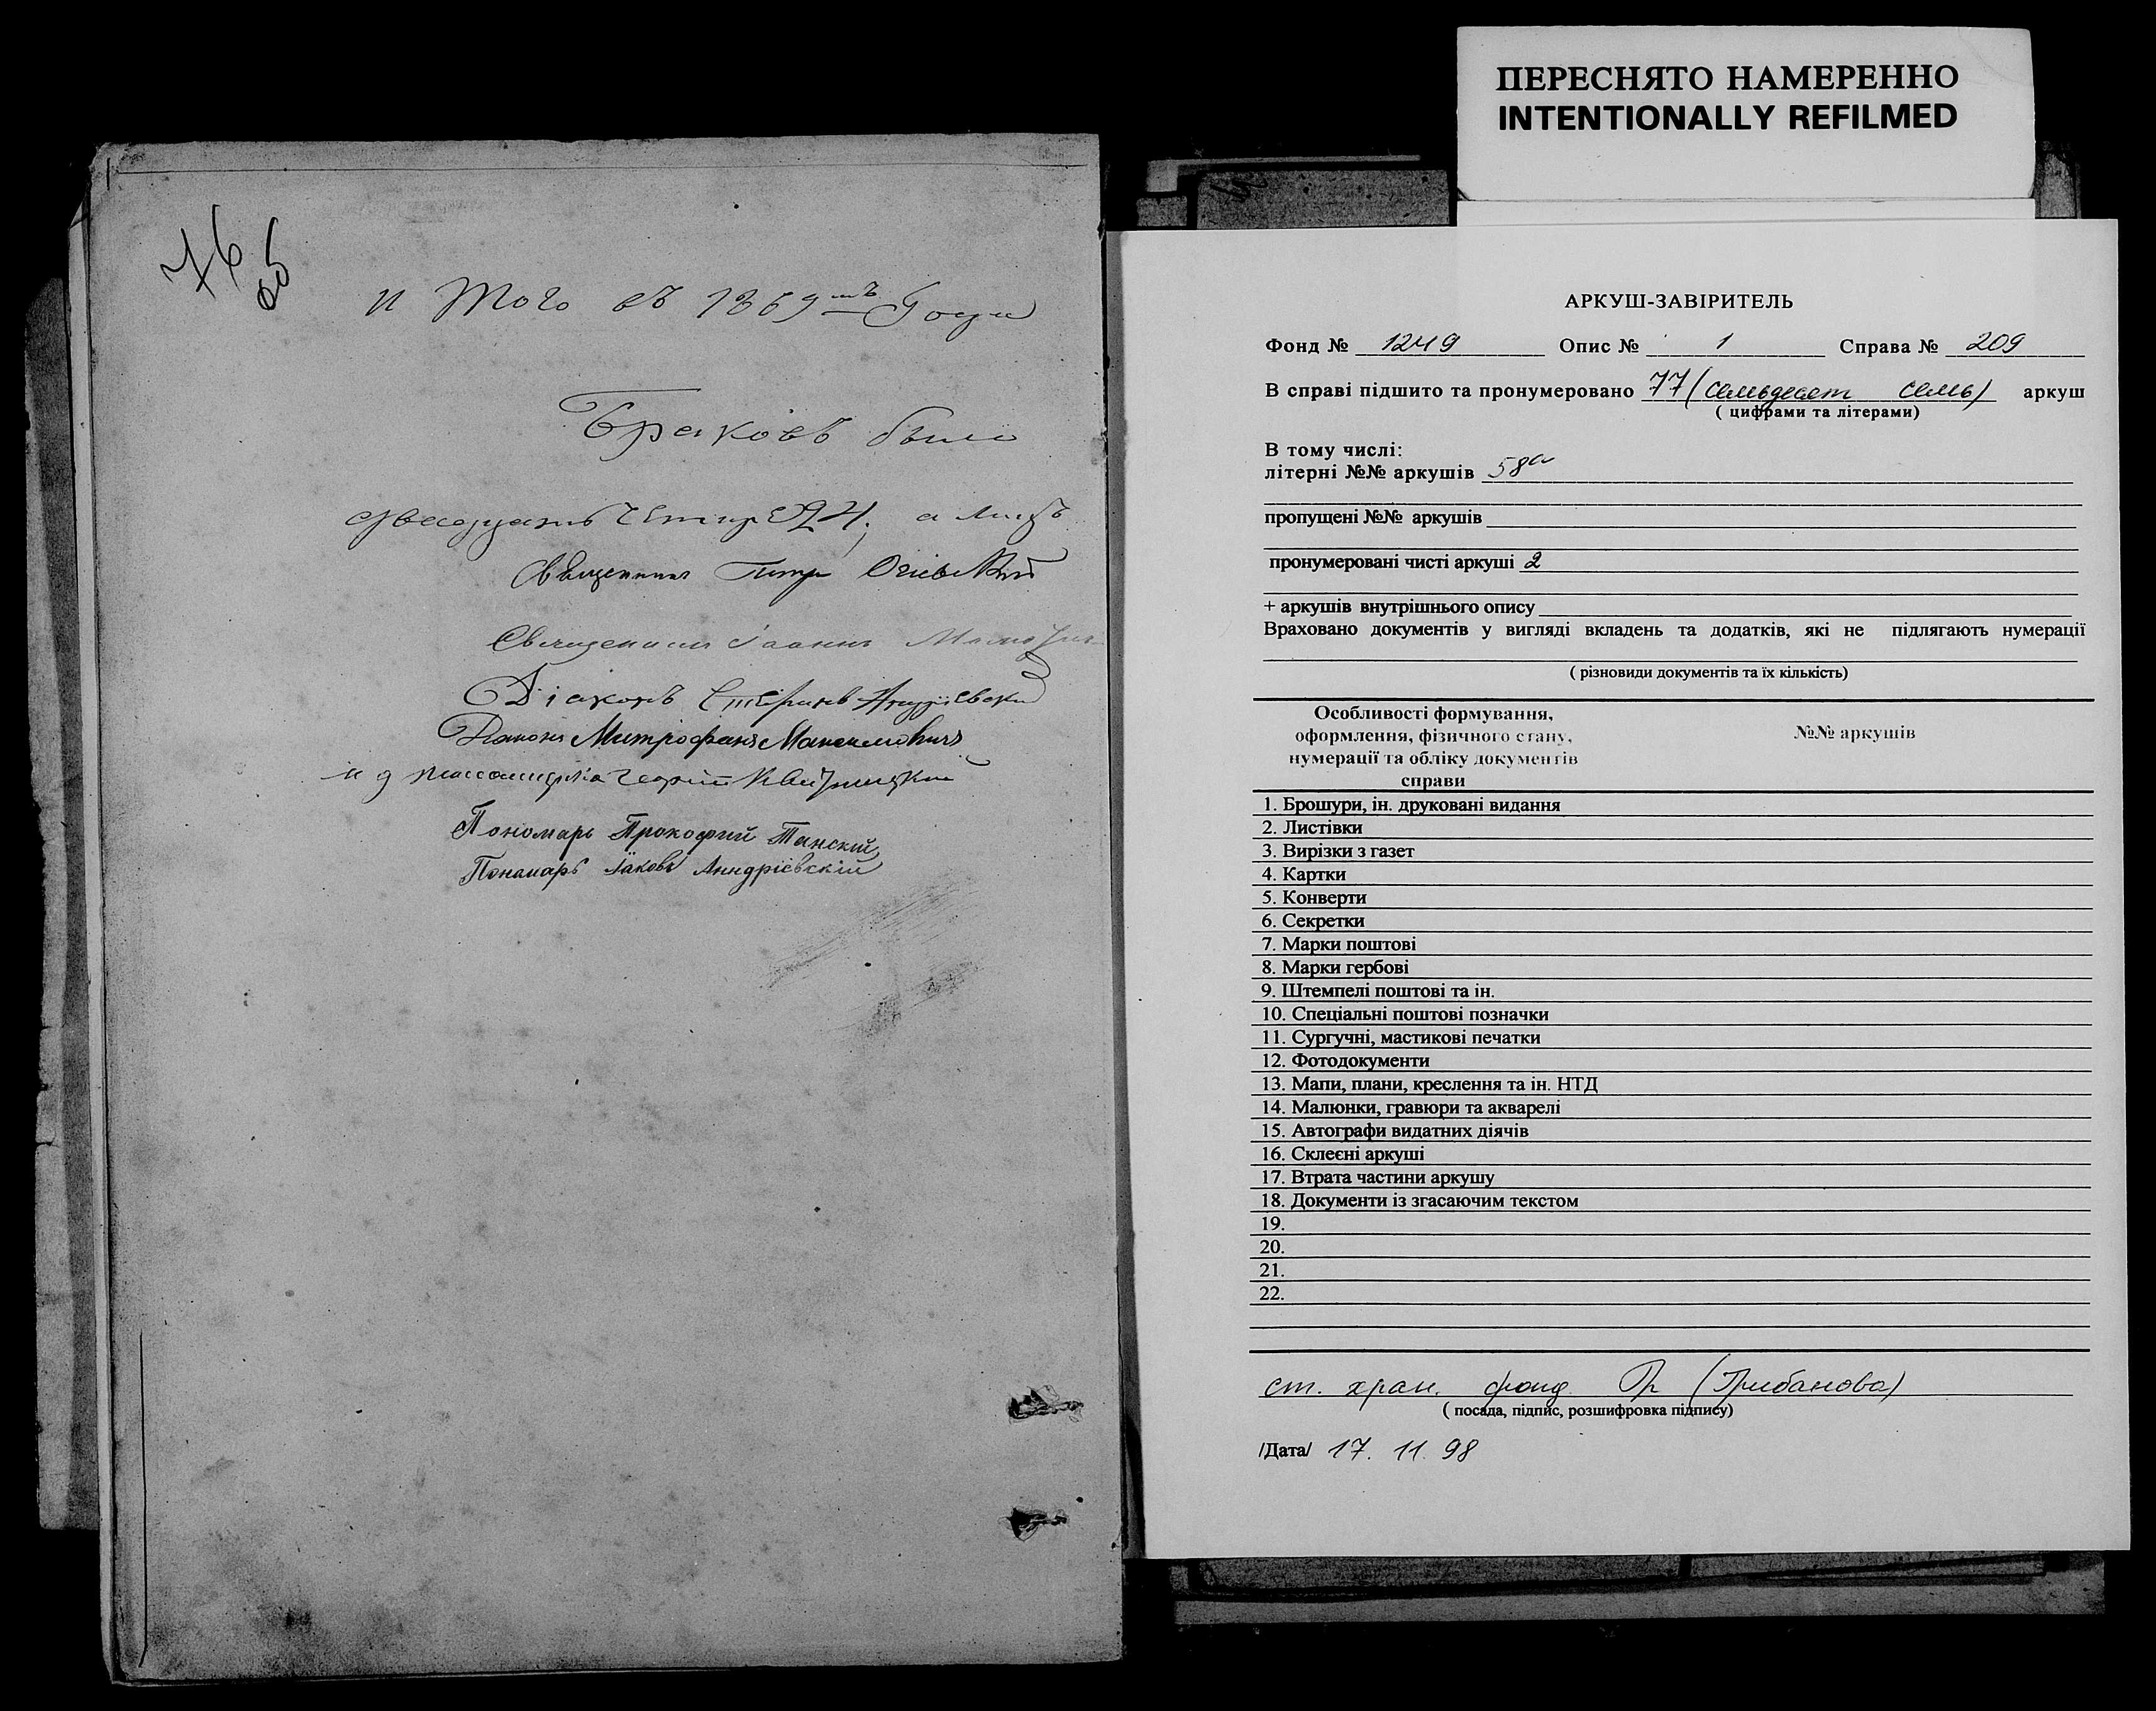 76
об
и Того въ 1869мъ Году
Браковъ было
двадцать четыре 24,
Священникъ Петръ
Священникъ Іоаннъ
Діаконъ Стефанъ Андріевскій
Діаконъ Митрофанъ Максимовичъ
и д псаломщика Георгій
Пономарь Прокофий Танскій
Пономарь Іаковъ Андріевскій
ПЕРЕСНЯТО НАМЕРЕННО
INTENTIONALLY REFILMED
АРКУШ-ЗАВІРИТЕЛЬ
Фонд № 1249 Опис № 1 Справа № 209
В справі підшито та пронумеровано 77 (семьдесят семь) аркуш
( цифрами та літерами)
В тому числі:
літерні №№ аркушів 58а
пропущені №№ аркушів
пронумеровані чисті аркуші 2
+ аркушів внутрішнього опису
Враховано документів у вигляді вкладень та додатків, які не підлягають нумерації
( різновиди документів та їх кількість)
Особливості формування,
оформлення, фізичного стану,
нумерації та обліку документів
справи
№№ аркушів
1. Брошури, ін. друковані видання
2. Листівки
3. Вирізки з газет
4. Картки
5. Конверти
6. Секретки
7. Марки поштові
8. Марки гербові
9. Штемпелі поштові та ін.
10. Спеціальні поштові позначки
11. Сургучні, мастикові печатки
12. Фотодокументи
13. Мапи, плани, креслення та ін. НТД
14. Малюнки, гравюри та акварелі
15. Автографи видатних діячів
16. Склеєні аркуші
17. Втрата частини аркушу
18. Документи із згасаючим текстом
19.
20.
21.
22.
ст. хран. фонд (Грибанова)
( посада, підпис, розшифровка підпису)
/Дата/ 17. 11. 98